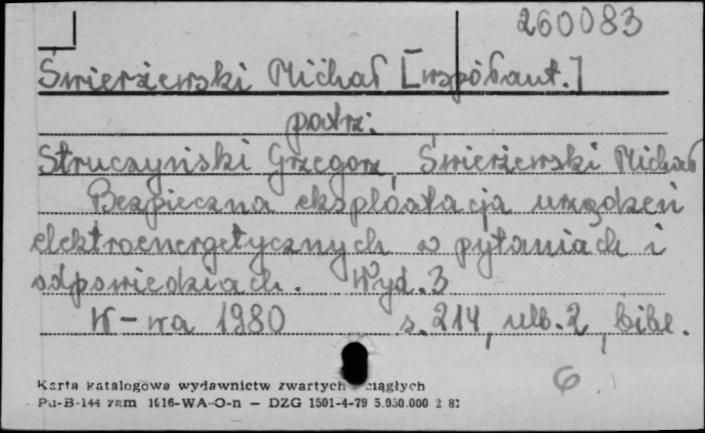 260083
Świerżewski Michał [współaut.]
patrz:
Struczyński Grzegorz, Świerżewski Michał
Bezpieczna eksploatacja urządzeń
elektroenergetycznych w pytaniach i
odpowiedziach. Wyd. 3
W-wa 1980 s. 214, nlb. 2, bibl.
6
Karta katalogowa wydawnictw zwartych ciągłych
Pu-B-144 zam 1616-WA-O-n — DZG 1501-4-79 5.050.000 2 81